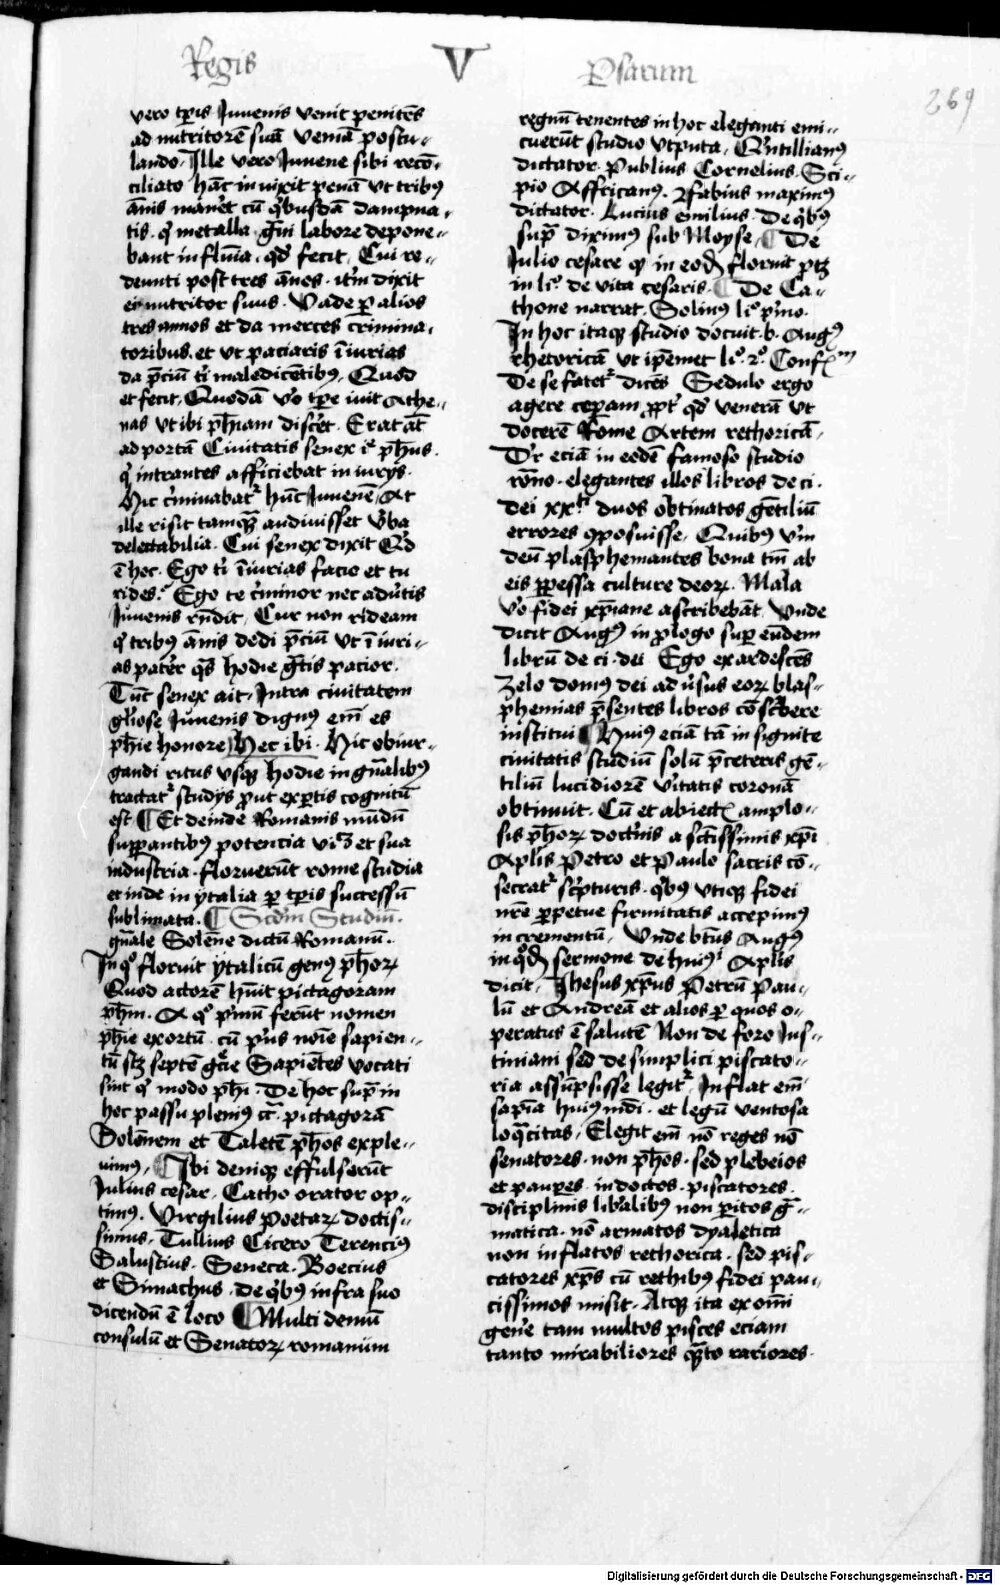 Regis V Psarum
269
vero tp̄is Juvenis venit penitēs
ad nutritorē suā veniā postu-
lando. Ille vero Juvene sibi recō-
ciliato hāc inuixit penā vt tribꝰ
ānis manēt cū qͥbusdā dampna-
tis. qͥ metalla gͣui labore depone-
bant in fluuiā. qd̓ fecit. Cui re-
deunti post tres ānos. itm̄ dixit
ei nutritor suus. Vade p̱ alios
tres annos et da merces crimina-
toribus. et vt paciaris īiurias
da p̄ciū tͥ maledicētibꝰ. Quod
et fecit. Quodā vͦo tp̄e iuit Athe-
nas vt ibi ph̄iam discēt. Erat āt
ad portā Ciuitatis senex iͣ ph̄us.
qͥ intrantes afficiebat iniurijs.
Hic cͥminabatᷣ hūc Juvenē At
ille risit tamqͣ̄ audiuisset vͤba
delectabilia. Cui senex dixit Qd̓
ē hoc. Ego tͥ īiurias facio et tu
rides. Ego te cͥminor nec aduͤtis
Juvenis rn̄dit. Cur non rideam
qͥ tribꝰ ānis dedi p̄ciū vt īiuri-
as patēr qͣs hodie gͣtis pacior.
Tūc senex ait. Intra ciuitatem
glͦiose Juvenis dignꝰ em̄ es
ph̄ie honore Hec ibi. Hic obiur-
gandi ritus vsqꝫ hodie in gn̄alibꝰ
tractatᷣ studijs p̱ut expertis cognitū
est ¶ Et deinde Romanis mūdū
supp̱antibꝰ potencia viꝫ et sua
industria. floruerūt rome studia
et inde in ytalia p̱ tp̄is successū
sublimata. ¶ Scd̓m Studiū.
gn̄ale Solēne dictū Romanū.
In qͦ floruit ytalicū genꝰ ph̄oꝝ
Quod actorē hūit pictagoram
ph̄m. A qͦ pͥmū ferūt nomen
ph̄ie exortū. cū pͥus noīe sapien-
tū sꝫ septē gͤcie Sapiētes vocati
sint qͥ modo ph̄i. De hoc supͣ in
hoc passu plenius cͣ pictagorā
Solōnem et Taletē ph̄os exple-
uimꝰ. ¶ Ibi deniqꝫ effulserūt
Julius cesar. Catho orator op-
timꝰ. Virgilius poetaꝝ doctis-
simus. Tullius Cicero Terenciꝰ
Salustius. Seneca. Boecius
et Simachus. de qͥbꝰ infra suo
dicendū ē loco ¶ Multi demū
consulū et Senatoꝝ romanum
regnū tenentes in hoc eleganti emi-
cuerūt studio vtputa. Qͥntillianꝰ
dictator. Publius Cornelius. Sci-
pio Affricanꝰ. Fabius maximꝰ
dictator. Lucius emilius. De qͥbꝰ
supͣ diximꝰ sub Moyse. ¶ De
Julio cesare qͥ in eod̓ floruit ptꝫ
in liͦ. de vita cesaris. ¶ De Ca-
thone narrat. Solinꝰ liͦ. pͥmo.
In hoc itaqꝫ studio docuit. b. Augꝰ
rhetoricā vt ip̄emet liͦ. 2ͦ. Conf.m
De se fatetᷣ dicēs Sedulo ergo
agere cep̱am p̱pt̓ qd̓ venerā vt
docerē Rome Artem rethoricā.
Dͬ eciā in eodē famoso studio
rōno. elegantes illos libros de ci.
dei xx.ti duos obtinatos gētiliū
errores ꝯposuisse. Quibꝰ vͤm
deū plasphemantes bona tm̄ ab
eis p̱pessa culture deoꝝ. Mala
vͦo fidei xp̄iane ascribebāt. Vnde
dicit Augꝰ in p̱logo sup̱ eūdem
librū de ci. dei Ego exardescēs
zelo domꝰ dei aduͤsus eoꝝ blas-
phemias p̄sentes libros cōscͥbere
institui ¶ Huiꝰ eciā tā insignite
ciuitatis studiū solū p̄ceteris gē-
tiliū lucidiorē vͤitatis coronā
obtinuit. Cū et abiectꝭ amplo-
sis ph̄oꝝ doctͥnis a sctīssimis xp̄i
Apl̄is Petro et Paulo sacris cō-
secratᷣ scͥpturis. qͥbꝰ vtiqꝫ fidei
nrē p̱petue firmitatis accepimꝰ
incrementū. Vnde btūs Augꝰ
in qͦd̓ sermone de huiꝰͥ Apl̄is
dicit. Jhesus xp̄us Petrū Pau-
lū et Andreā et alios p̱ quos o-
peratus ē salutē Non de foro Jus-
tiniani sed de simplici piscato-
ria assūpsisse legitᷣ. Inflat em̄
sapīa huiꝰ mdi. et legū ventosa
loqͣcitas. Elegit em̄ nō reges nō
senatores. non ph̄os. sed plebeios
et paup̱es. indoctos. piscatores.
disciplinis libͤalibꝰ non p̱itos gͣ-
matica. nō armatos dyaletica
non inflatos rethorica. sed pis-
catores xp̄s cū rethibꝰ fidei pau-
cissimos misit. Atqꝫ ita ex omī
genͤe tam multos pisces eciam
tanto mirabiliores qͣto rariores.
Digitalisierung gefördert durch die Deutsche Forschungsgemeinschaft - DFG